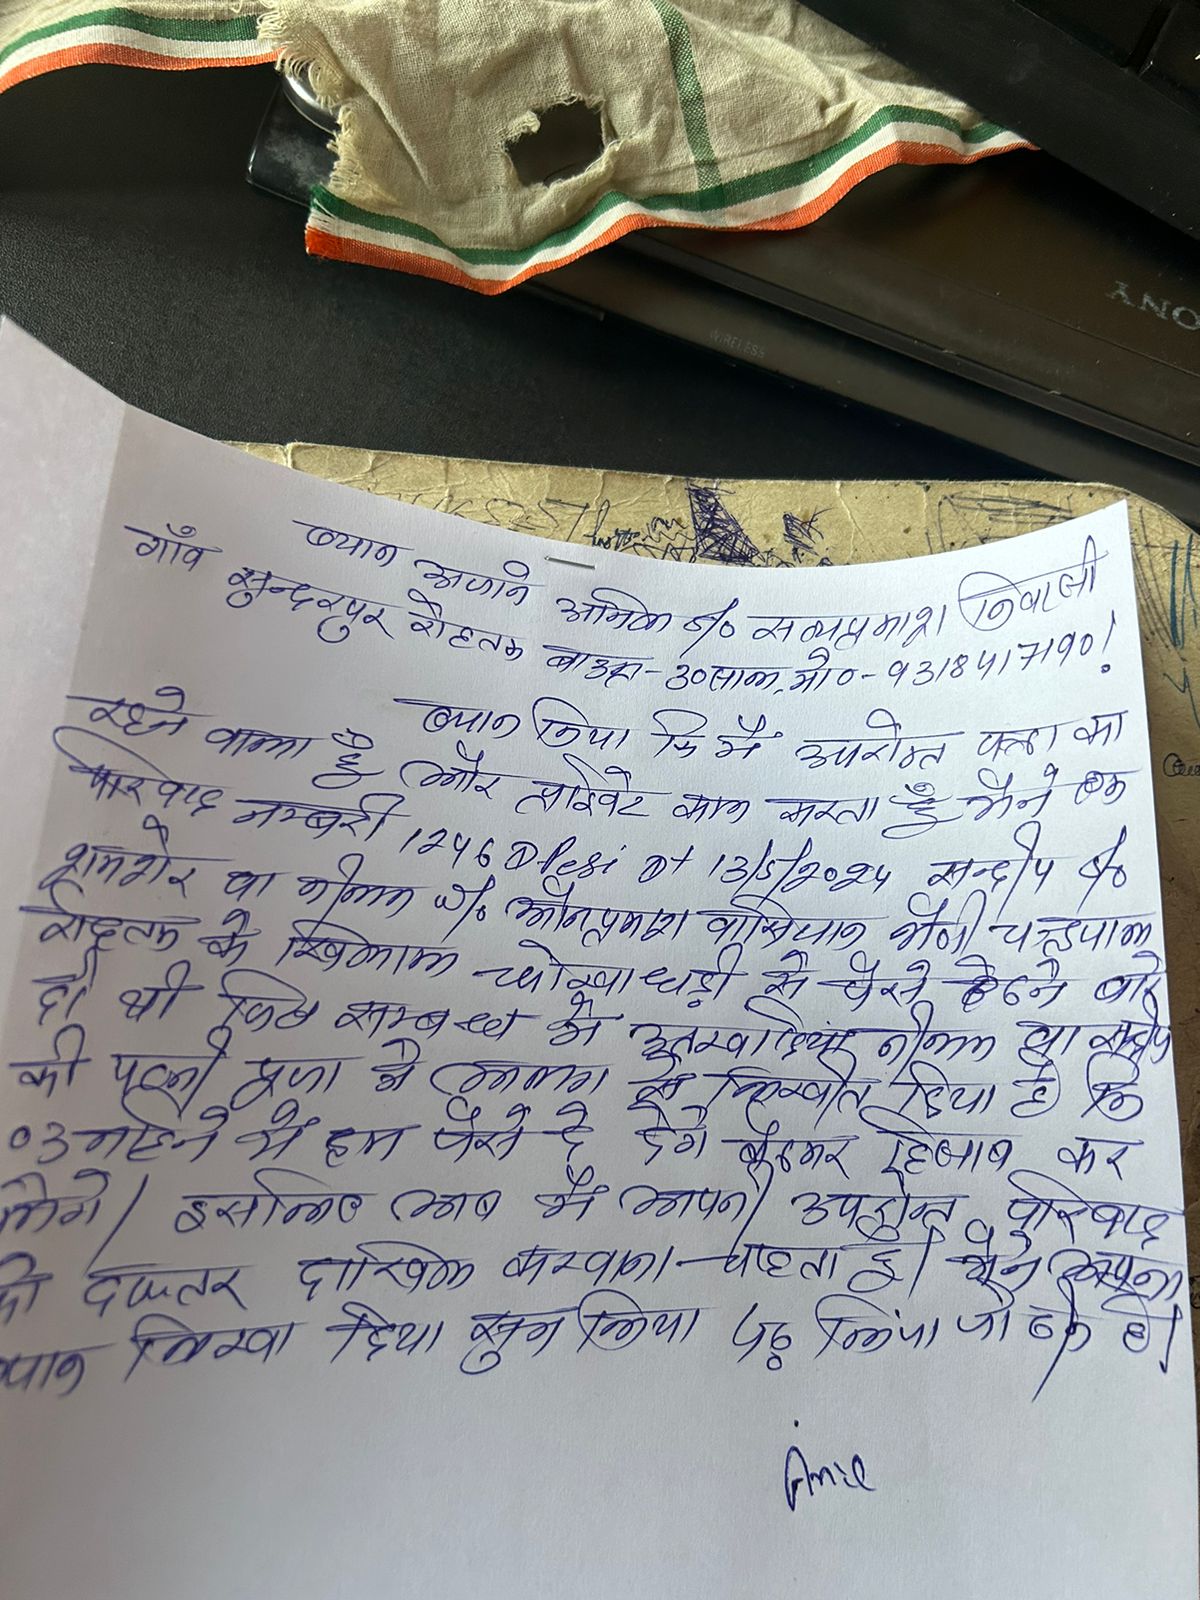 SONY
WIRELESS
ब्यान अजाने अनिल S/o सत्यप्रकाश निवासी
गाँव सुन्दरपुर रोहतक बाउम्र-30साल, मो०-9318417190!
ब्यान किया कि मैं उपरोक्त पता का
रहने वाला हूँ और प्राईवेट काम करता हूँ मैने एक
परिवाद नम्बरी 1246 Dt 13/5/2024 सन्दीप S/o
शमशेर वा नीलम W/o ओमप्रकाश वासियान
रोहतक के खिलाफ धोखाधड़ी से पैसे ऐठने बारे
दी थी जिस सम्बन्ध में नीलम वा सन्दीप
की पत्नी पूजा ने अलग से लिखीत दिया है कि
03 महिने में हम पैसे दे देगे बैठकर हिसाब कर
लेगे। इसलिए अब मैं अपना उपरोक्त परिवाद
को दफ्तर दाखिल करवाना चाहता हूँ। मैने अपना
ब्यान लिखा दिया सुन लिया पढ़ लिया जो ठीक है।
Anil